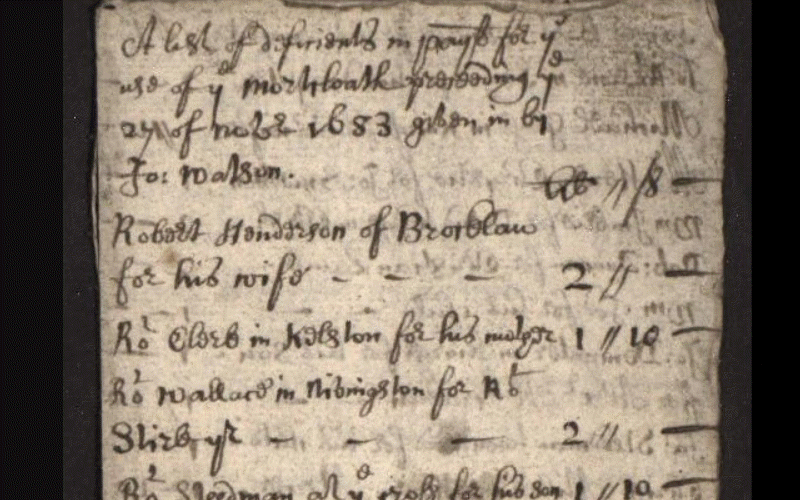 A list of deficients in payt for ye
use of ye mortcloath preceeding ye
27 of novbr 1683 given in by
Jo: Watson.
lib // s —
Robert Henderson of Brocklaw
for his wife - - - 2 // —
Ro Clerk in Kelston for his mother 1 // 10 —
Ro Wallace in Nivingston for Ro
Stirk yr — — — 2 // —
Ro Steedman at ye cross for his son 1 // 10 —